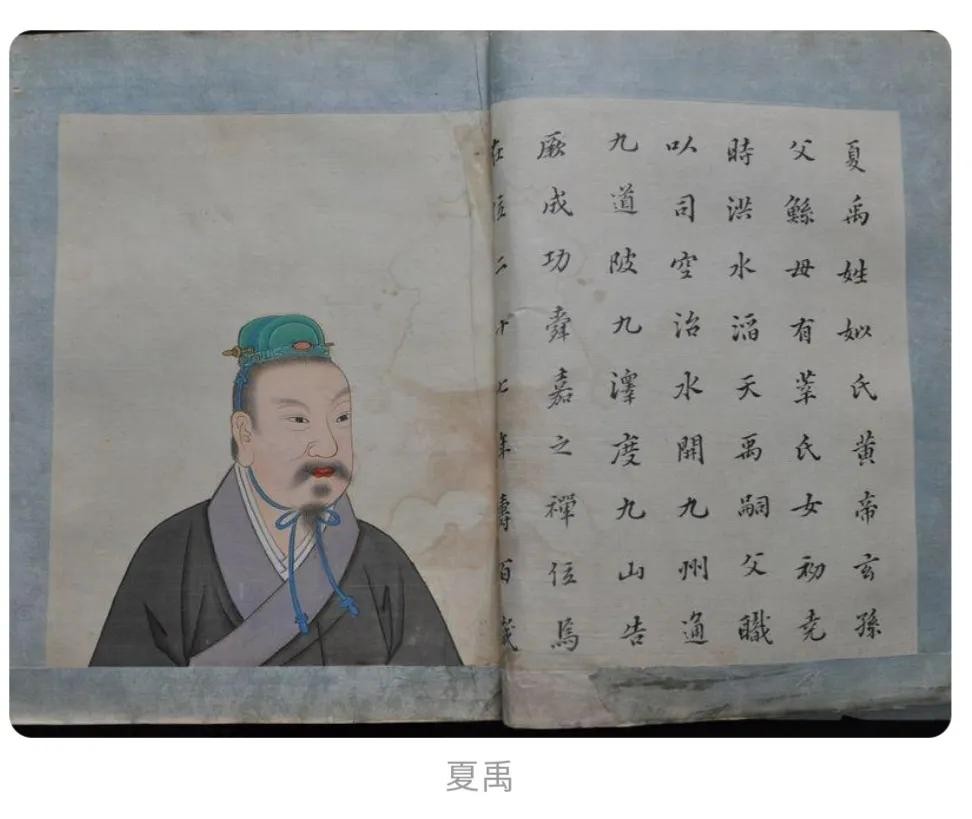 夏禹姓姒氏黄帝玄孫
父鯀母有莘氏女初堯
時洪水滔天禹嗣父職
以司空治水開九州通
九道陂九澤度九山告
厥成功舜嘉之禪位焉
在位二十七年壽百歲
夏禹